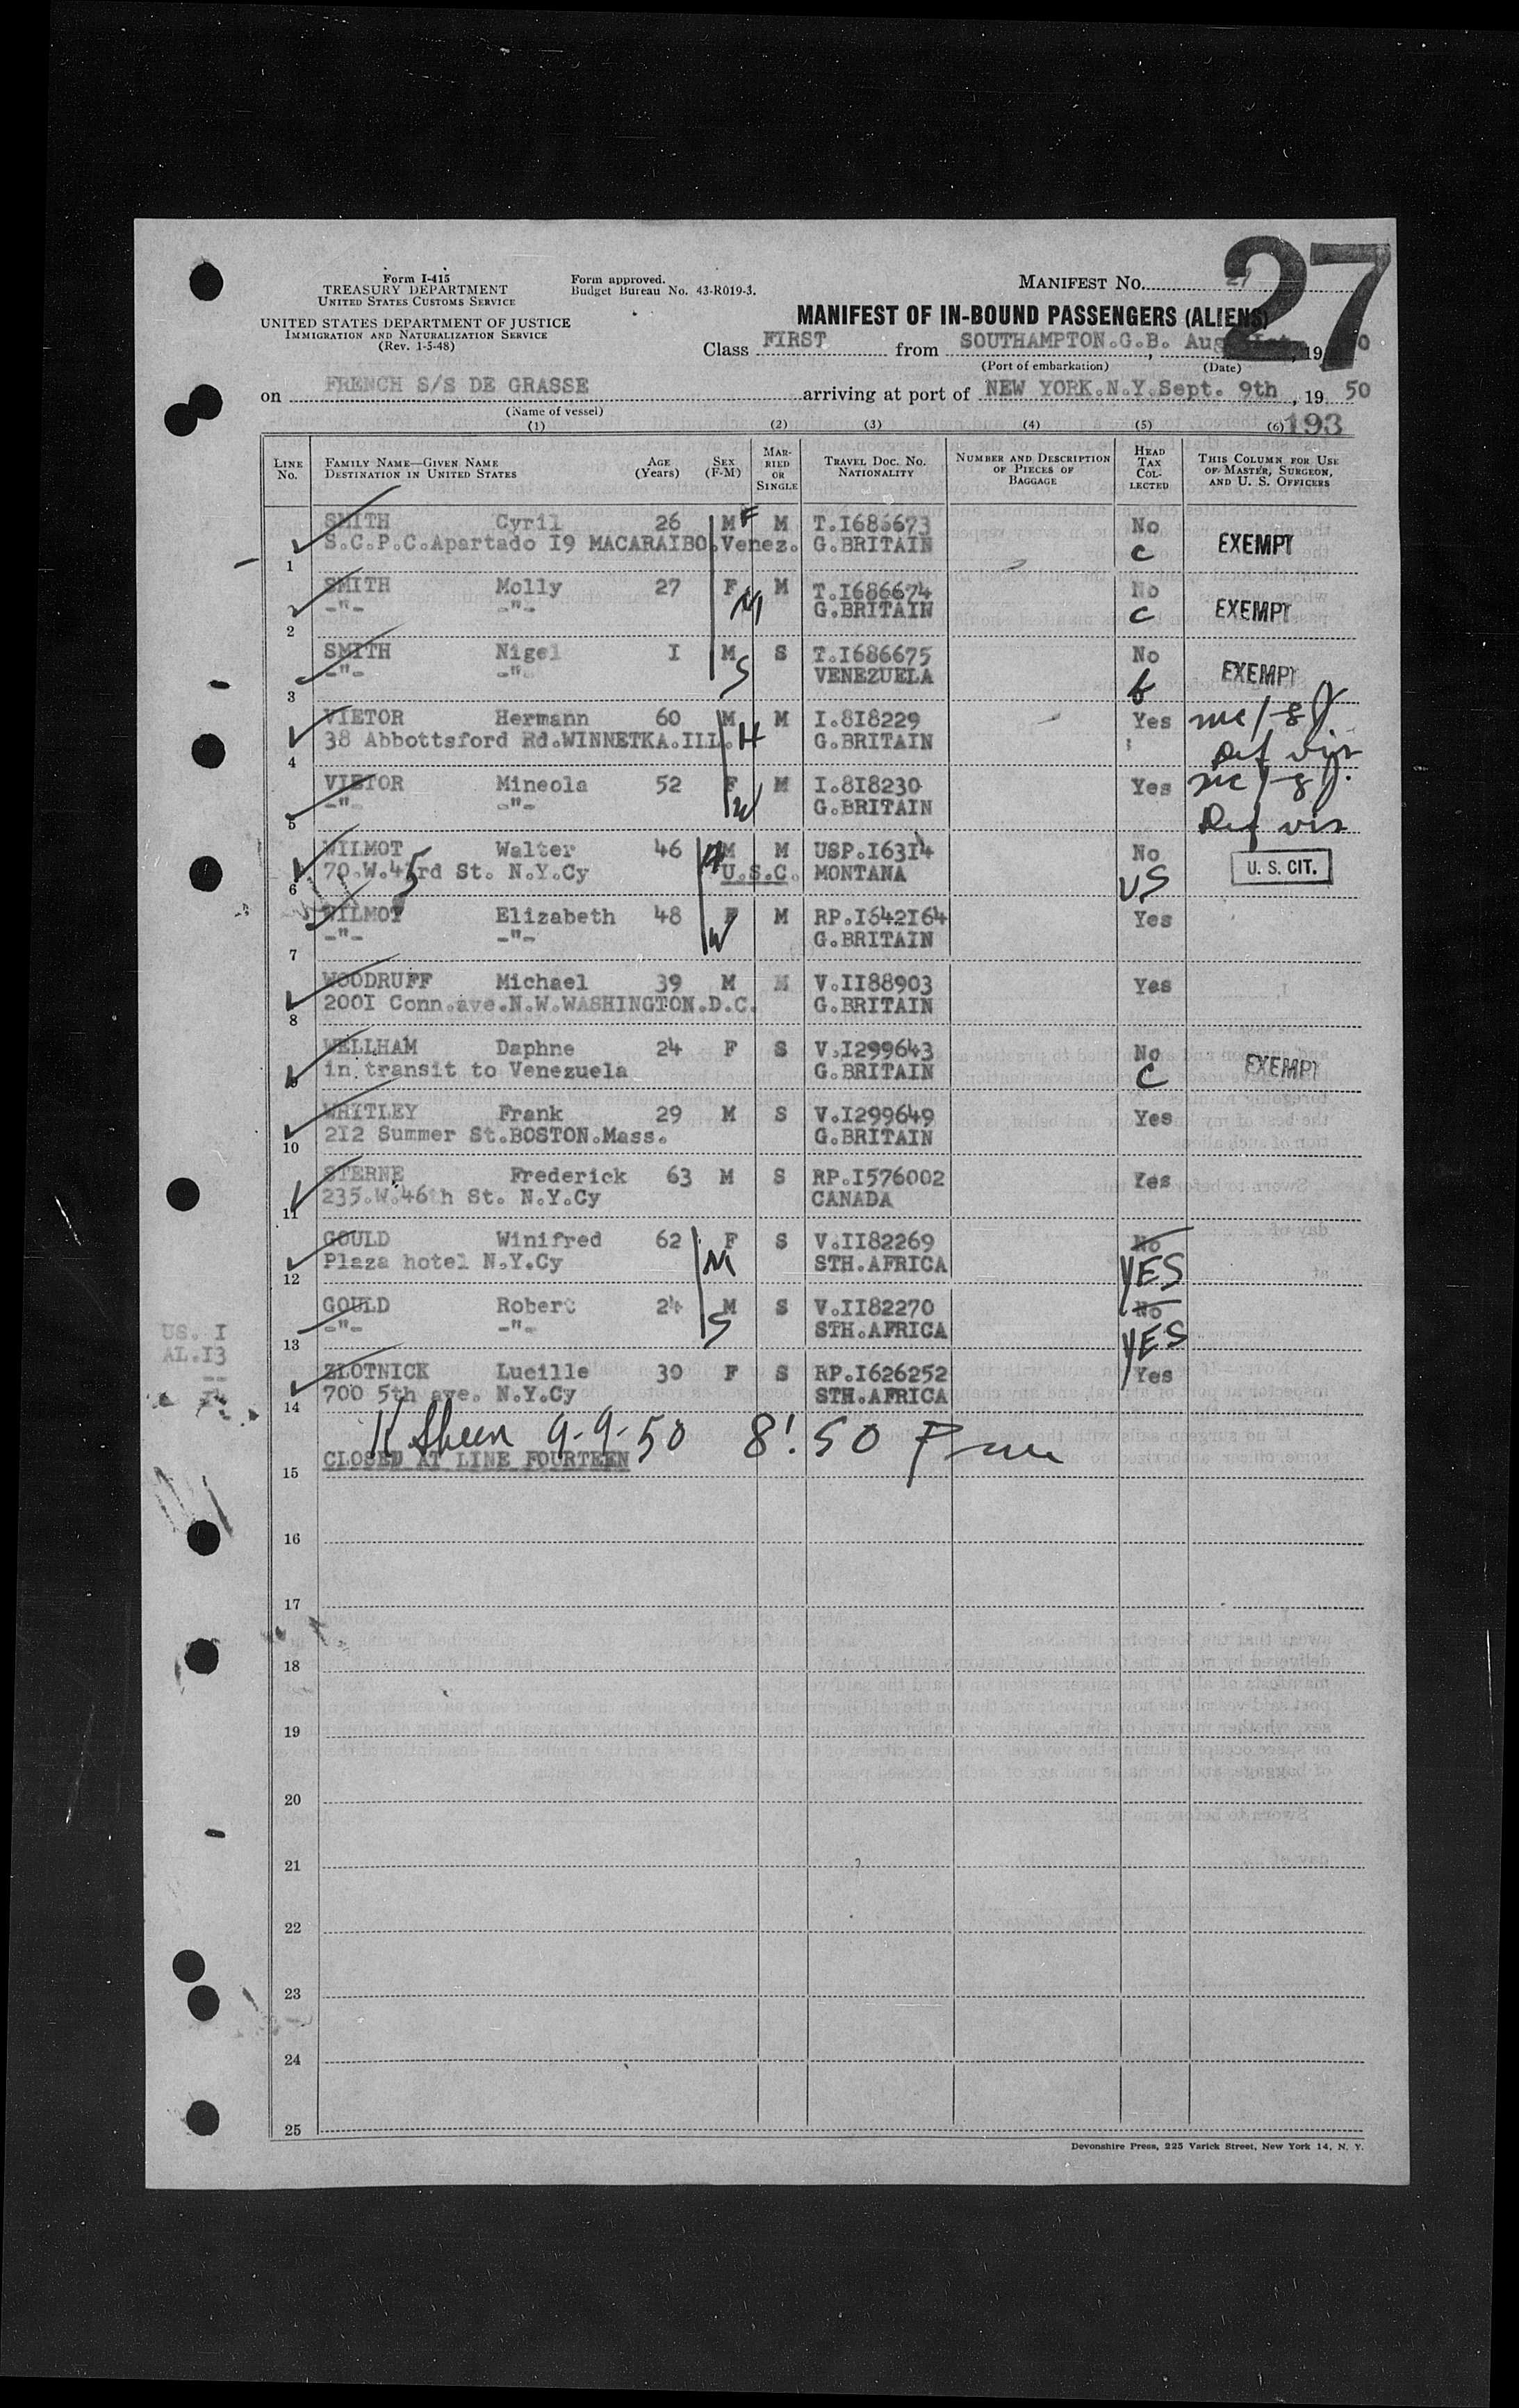 27
Form I-415
TREASURY DEPARTMENT
UNITED STATES CUSTOMS SERVICE
UNITED STATES DEPARTMENT OF JUSTICE
IMMIGRATION AND NATURALIZATION SERVICE
(Rev. 1-5-48)
Form approved.
Budget Bureau No. 43-R019-3.
MANIFEST No. 27
MANIFEST OF IN-BOUND PASSENGERS (ALIENS)
Class FIRST from SOUTHAMPTON.G.B. Aug , 19 0
(Port of embarkation) (Date)
on FRENCH S/S DE GRASSE arriving at port of NEW YORK.N.Y.Sept. 9th , 19 50
(Name of vessel)
(1) (2) (3) (4) (5) (6) 193
LINE No. FAMILY NAME—GIVEN NAME DESTINATION IN UNITED STATES AGE (Years) SEX (F-M) MARRIED OR SINGLE TRAVEL DOC. No. NATIONALITY NUMBER AND DESCRIPTION OF PIECES OF BAGGAGE HEAD TAX COLLECTED THIS COLUMN FOR USE OF MASTER, SURGEON, AND U. S. OFFICERS
SMITH Cyril 26 M F M T.I686673 No
1 S.C.P.C.Apartado I9 MACARAIBO.Venez. G.BRITAIN C EXEMPT
SMITH Molly 27 F M T.I686674 No
2 -"- -"- M G.BRITAIN C EXEMPT
SMITH Nigel I M S T.I686675 No
3 -"- -"- S VENEZUELA EXEMPT
VIETOR Hermann 60 M M I.8I8229 Yes
4 38 Abbottsford Rd.WINNETKA.ILL. H G.BRITAIN
VIETOR Mineola 52 F M I.8I8230 Yes
5 -"- -"- W G.BRITAIN
WILMOT Walter 46 M H M USP.I63I4 No
6 70.W.45rd St. N.Y.Cy U.S.C. MONTANA US U. S. CIT.
WILMOT Elizabeth 48 F M RP.I642I64 Yes
7 -"- -"- W G.BRITAIN
WOODRUFF Michael 39 M M V.II88903 Yes
8 200I Conn.ave.N.W.WASHINGTON.D.C. G.BRITAIN
WELLHAM Daphne 24 F S V.I299643 No
9 in transit to Venezuela G.BRITAIN C EXEMPT
WHITLEY Frank 29 M S V.I299649 Yes
10 2I2 Summer St.BOSTON.Mass. G.BRITAIN
STERNE Frederick 63 M S RP.I576002 Yes
11 235.W.46th St. N.Y.Cy CANADA
GOULD Winifred 62 F S V.II82269 No
12 Plaza hotel N.Y.Cy M STH.AFRICA YES
GOULD Robert 24 M S V.II82270 No
13 -"- -"- S STH.AFRICA YES
US. I
AL.I3
--
I4
ZLOTNICK Lucille 30 F S RP.I626252 Yes
14 700 5th ave. N.Y.Cy STH.AFRICA
9-9-50 8:50 Pm
15 CLOSED AT LINE FOURTEEN
16
17
18
19
20
21
22
23
24
25
Devonshire Press, 225 Varick Street, New York 14, N. Y.